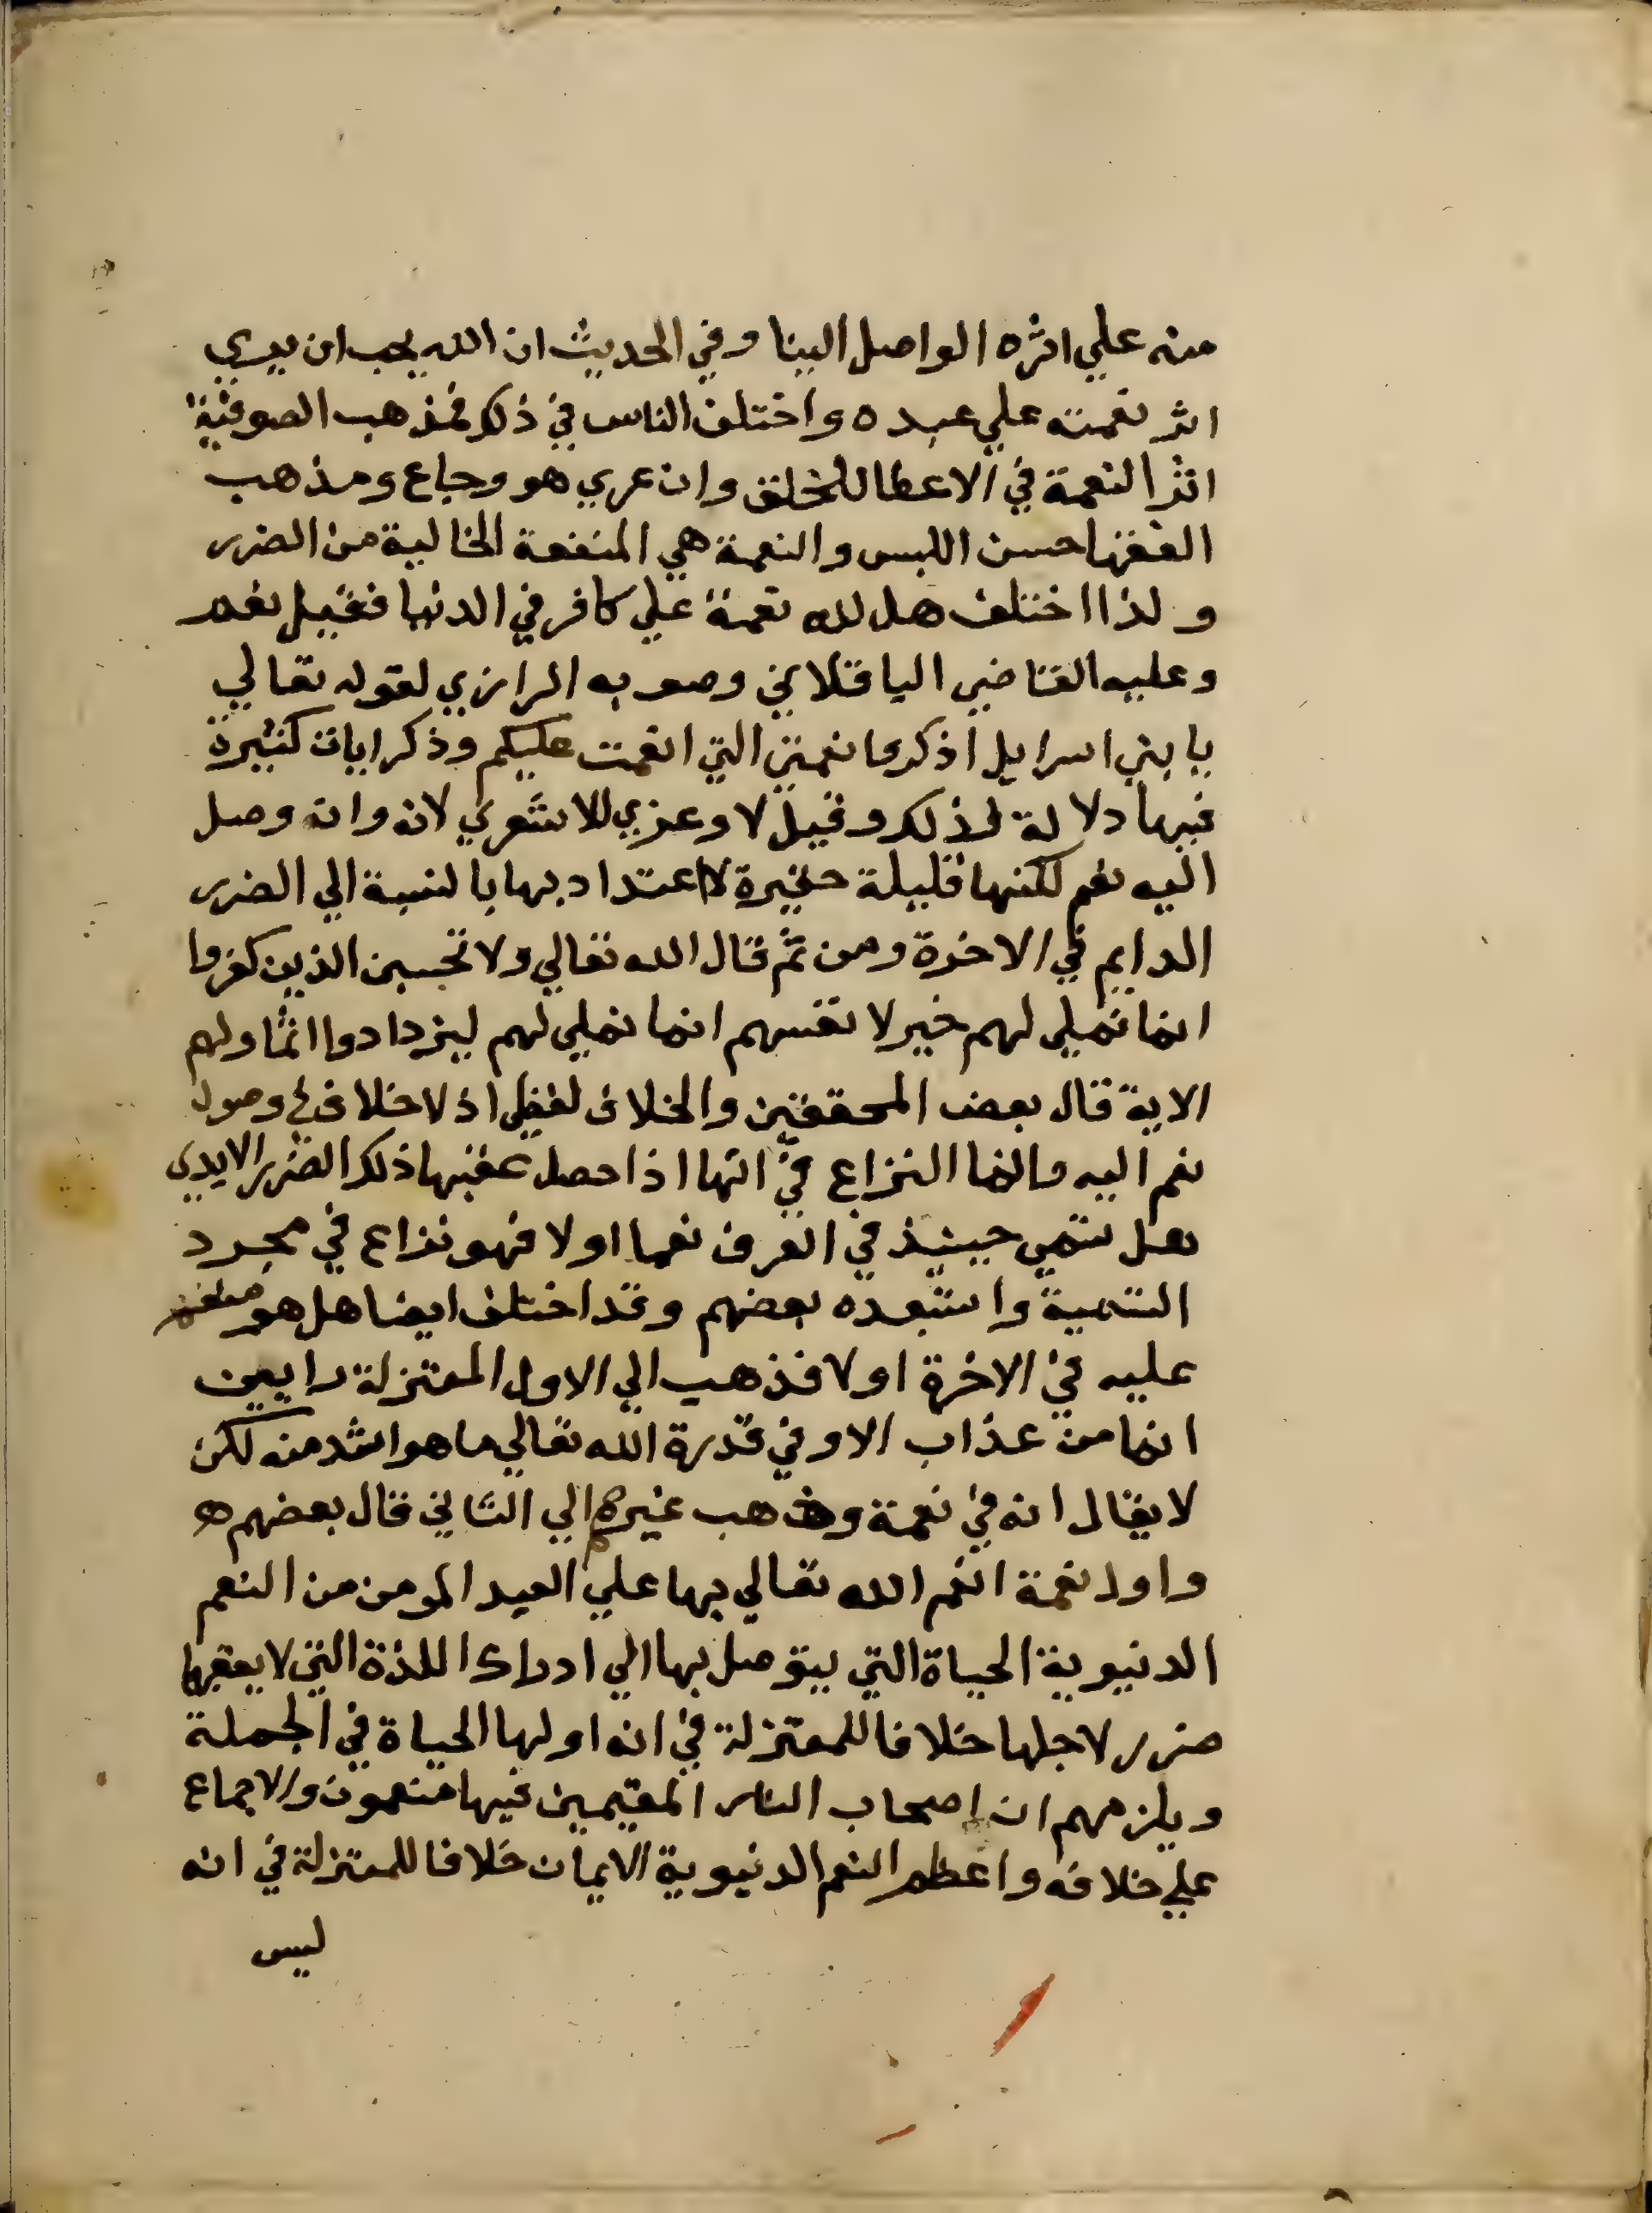 منه علي اثره الواصل الينا وفي الحديث ان الله يحب ان يري
اثر نعمته علي عبده واختلف الناس في ذلك فمذهب الصوفية
اثر النعمة في الاعطا للخلق وان عري هو وجاع ومذهب
الفقها حسن اللبس والنعمة هي المنفعة الخالية من الضرر
ولذا اختلف هل لله نعمة علي كافر في الدنيا فقيل نعم
وعليه القاضي الباقلاني وصوبه الرازي لقوله تعالي
يا بني اسرايل اذكروا نعمتي التي انعمت عليكم وذكر ايات كثيرة
فيها دلالة لذلك وقيل لا وعزي للاشعري لانه وان وصل
اليه نعم لكنها قليلة حقيرة لا اعتداد بها بالنسبة الي الضرر
الدايم في الاخرة ومن ثم قال الله تعالي ولا تحسبن الذين كفروا
انما نملي لهم خير لانفسهم انما نملي لهم ليزدادوا اثما ولهم
الاية قال بعض المحققين والخلاف لفظي اذ لا خلاف في وصول
نعم اليه وانما النزاع في انها اذا حصل عقبها ذلك الضرر الابدي
هل تسمي حينيذ في العرف نعما اولا فهو نزاع في مجرد
التسمية واستبعده بعضهم وقد اختلف ايضا هل هو منعم
عليه في الاخرة اولا فذهب الي الاول المعتزلة رايين
انما من عذاب الا وفي قدرة الله تعالي ما هو اشد منه لكن
لا يقال انه في نعمة وذهب غيرهم الي الثاني قال بعضهم
واول نعمة انعم الله تعالي بها علي العبد المومن من النعم
الدنيوية الحياة التي يتوصل بها الي ادراك اللذة التي لا يعقبها
ضرر لاجلها خلافا للمعتزلة في ان اولها الحياة في الجملة
ويلزمهم ان اصحاب النار المقيمين فيها منعمون والاجماع
علي خلافه واعظم النعم الدنيوية الايمان خلافا للمعتزلة في انه
ليس